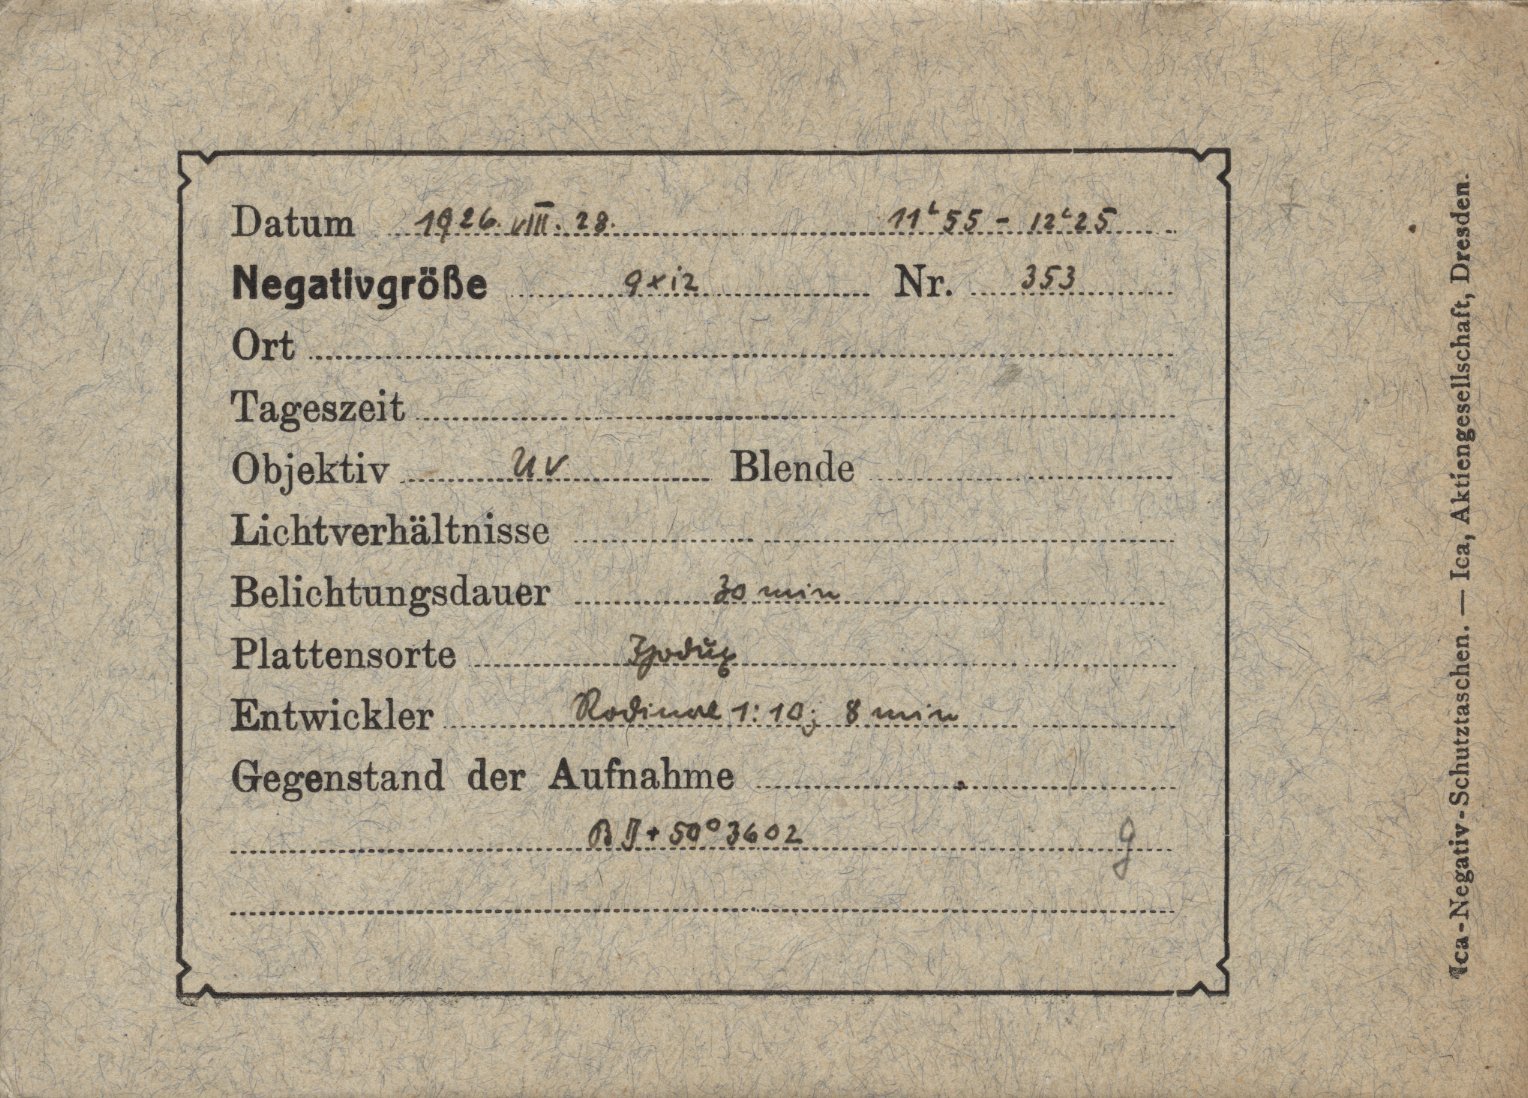 Datum 1926. VIII. 28. 11ʰ55 - 12ʰ25
Negativgröße 9x12 Nr. 353
Ort
Tageszeit
Objektiv UV Blende
Lichtverhältnisse
Belichtungsdauer 30 min
Plattensorte
Entwickler Rodinal 1:10; 8 min
Gegenstand der Aufnahme
BD + 50° 3602 g
Ica-Negativ-Schutztaschen. — Ica, Aktiengesellschaft, Dresden.